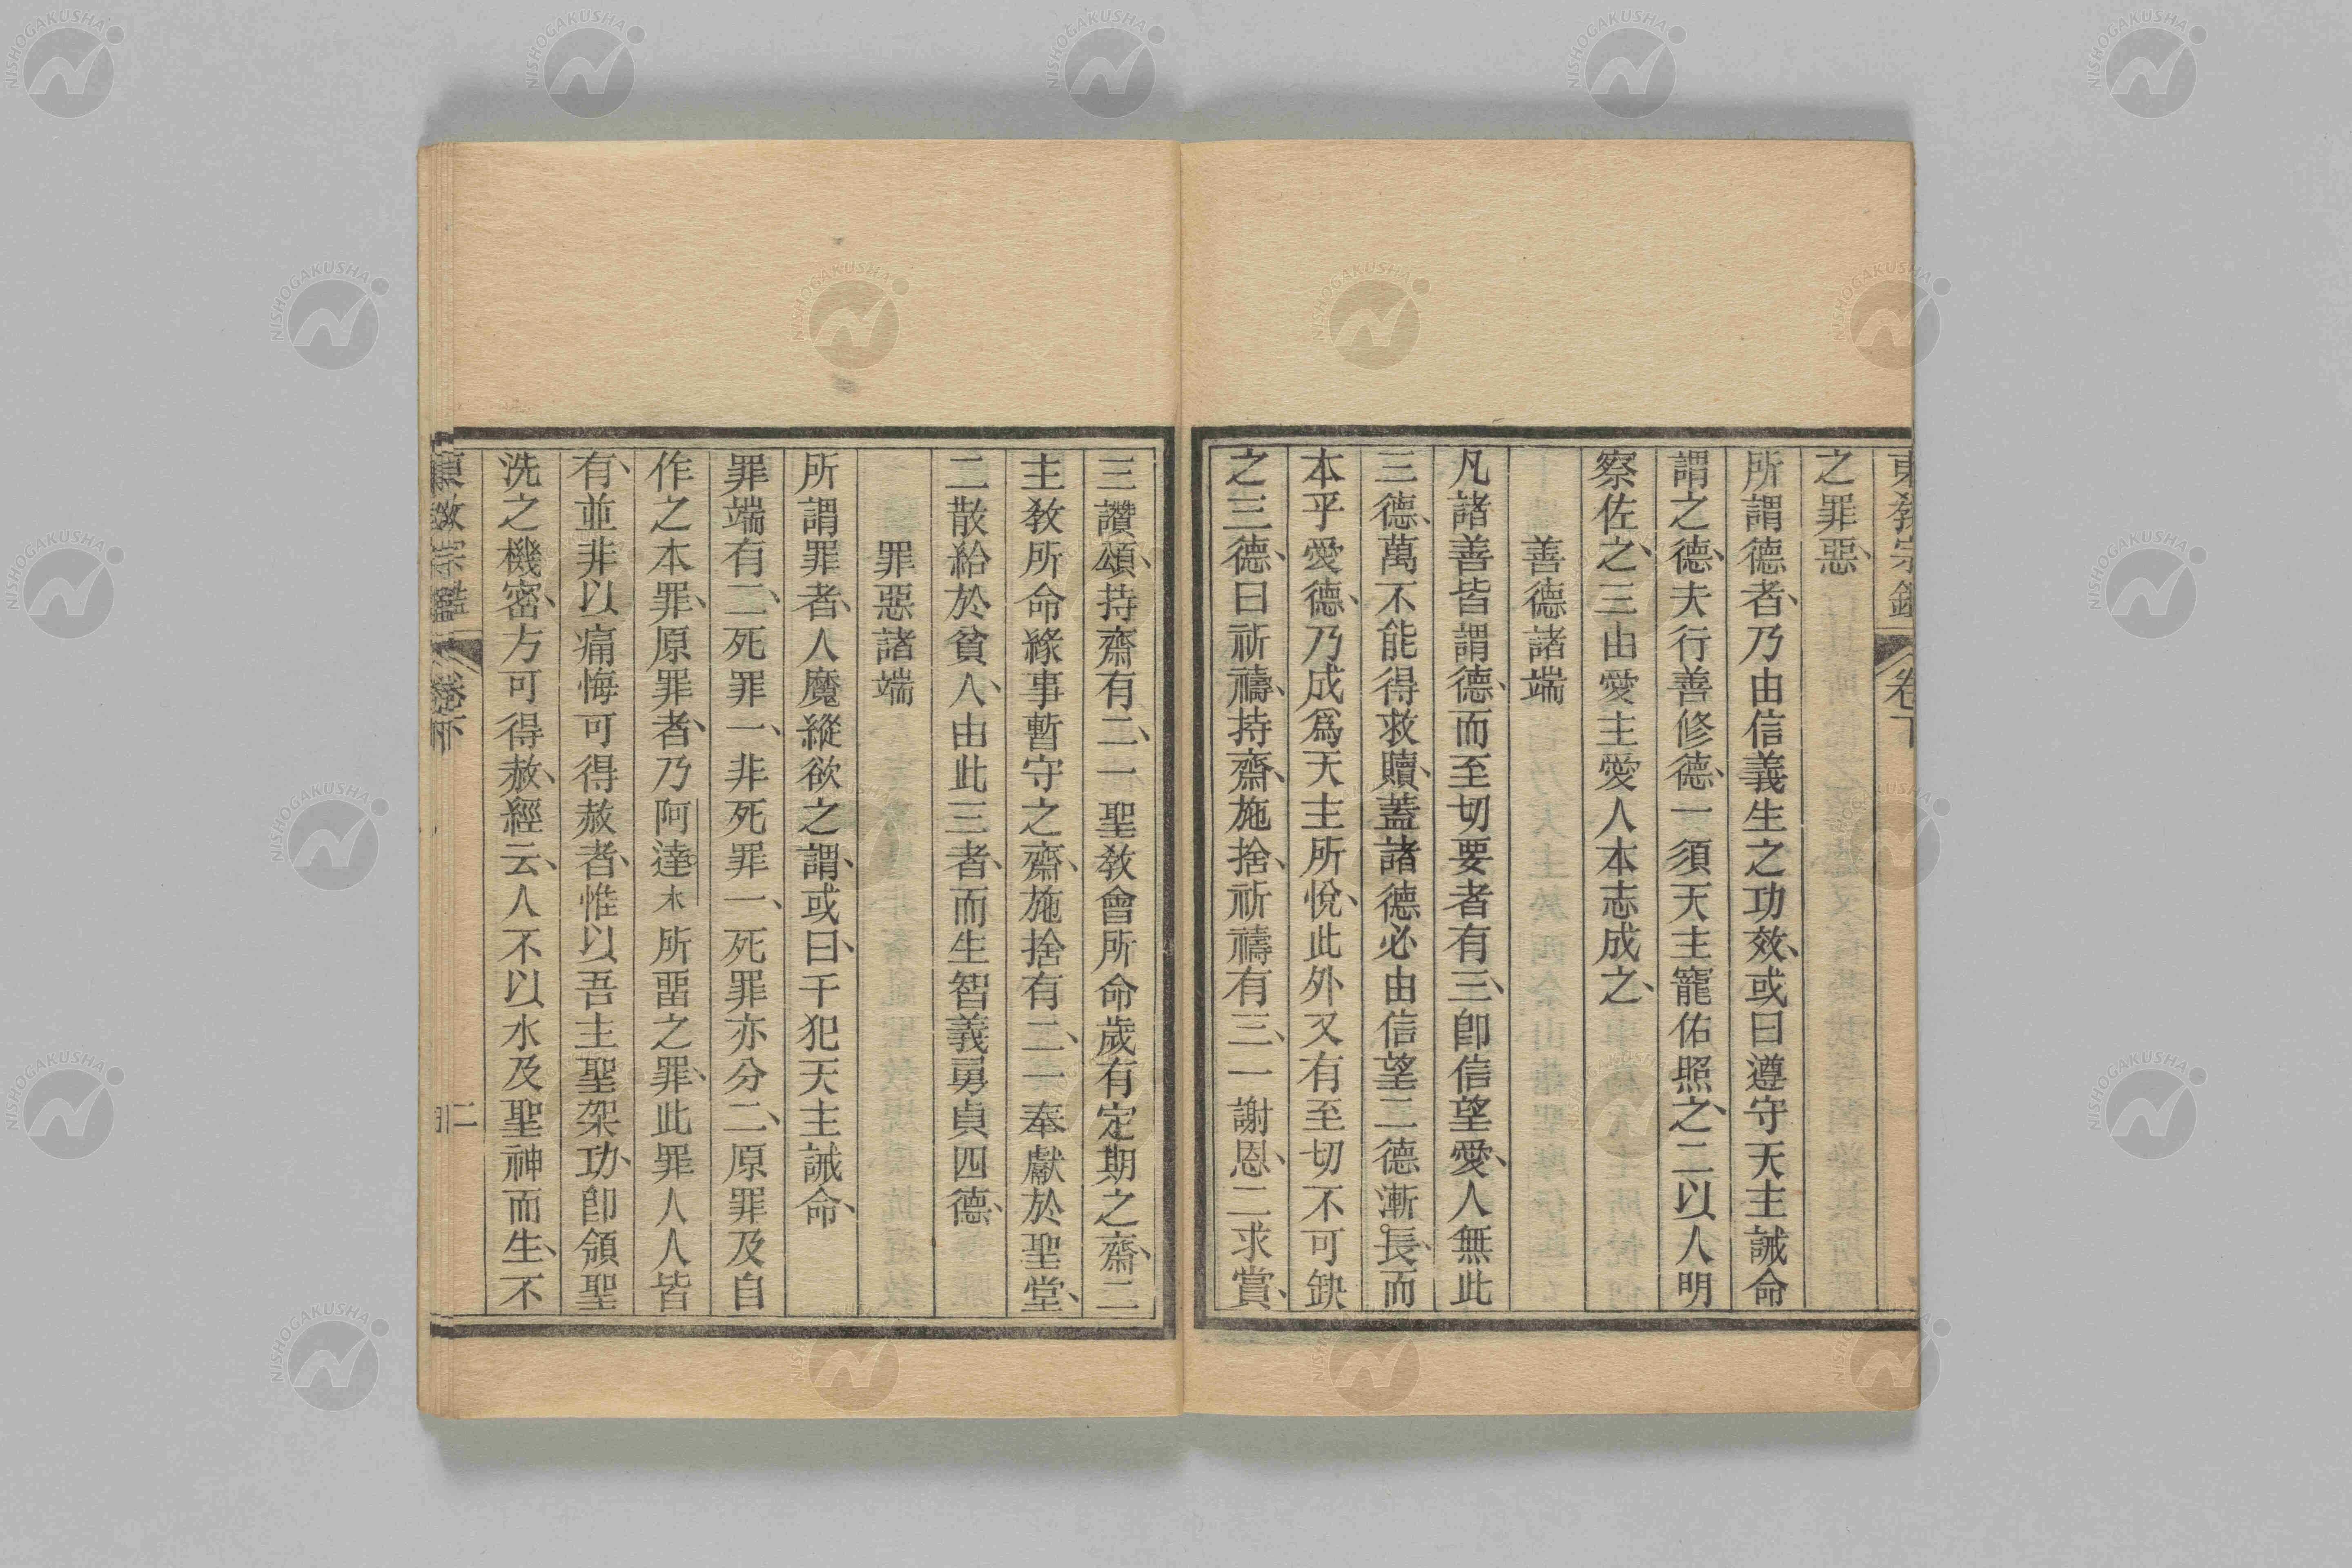 東教宗鑑 卷下
之罪惡、
所謂德者、乃由信義生之功效、或曰遵守天主誡命
謂之德、夫行善修德、一須天主寵佑照之、二以人明
察佐之、三由愛主愛人本志成之、
善德諸端
凡諸善皆謂德、而至切要者有三、卽信望愛、人無此
三德、萬不能得救贖、蓋諸德必由信望二德漸長、而
本乎愛德、乃成爲天主所悅、此外又有至切不可缺
之三德、曰祈禱、持齋、施捨、祈禱有三、一謝恩、二求賞、
三讚頌、持齋有二、一聖教會所命歲有定期之齋、二
主教所命緣事暫守之齋、施捨有二、一奉獻於聖堂、
二散給於貧人、由此三者、而生智義勇貞四德、
罪惡諸端
所謂罪者、人魔縱欲之謂、或曰、干犯天主誡命、
罪端有二、死罪一、非死罪一、死罪亦分二、原罪及自
作之本罪、原罪者、乃阿達木所畱之罪、此罪人人皆
有、並非以痛悔可得赦者、惟以吾主聖架功、卽領聖
洗之機密、方可得赦、經云、人不以水及聖神而生、不
二
NISHOGAKUSHA